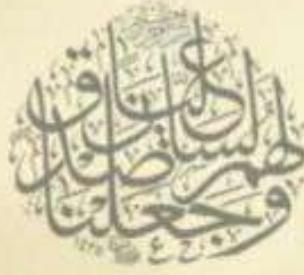 وجعلنا لهم لسان صدق عليا